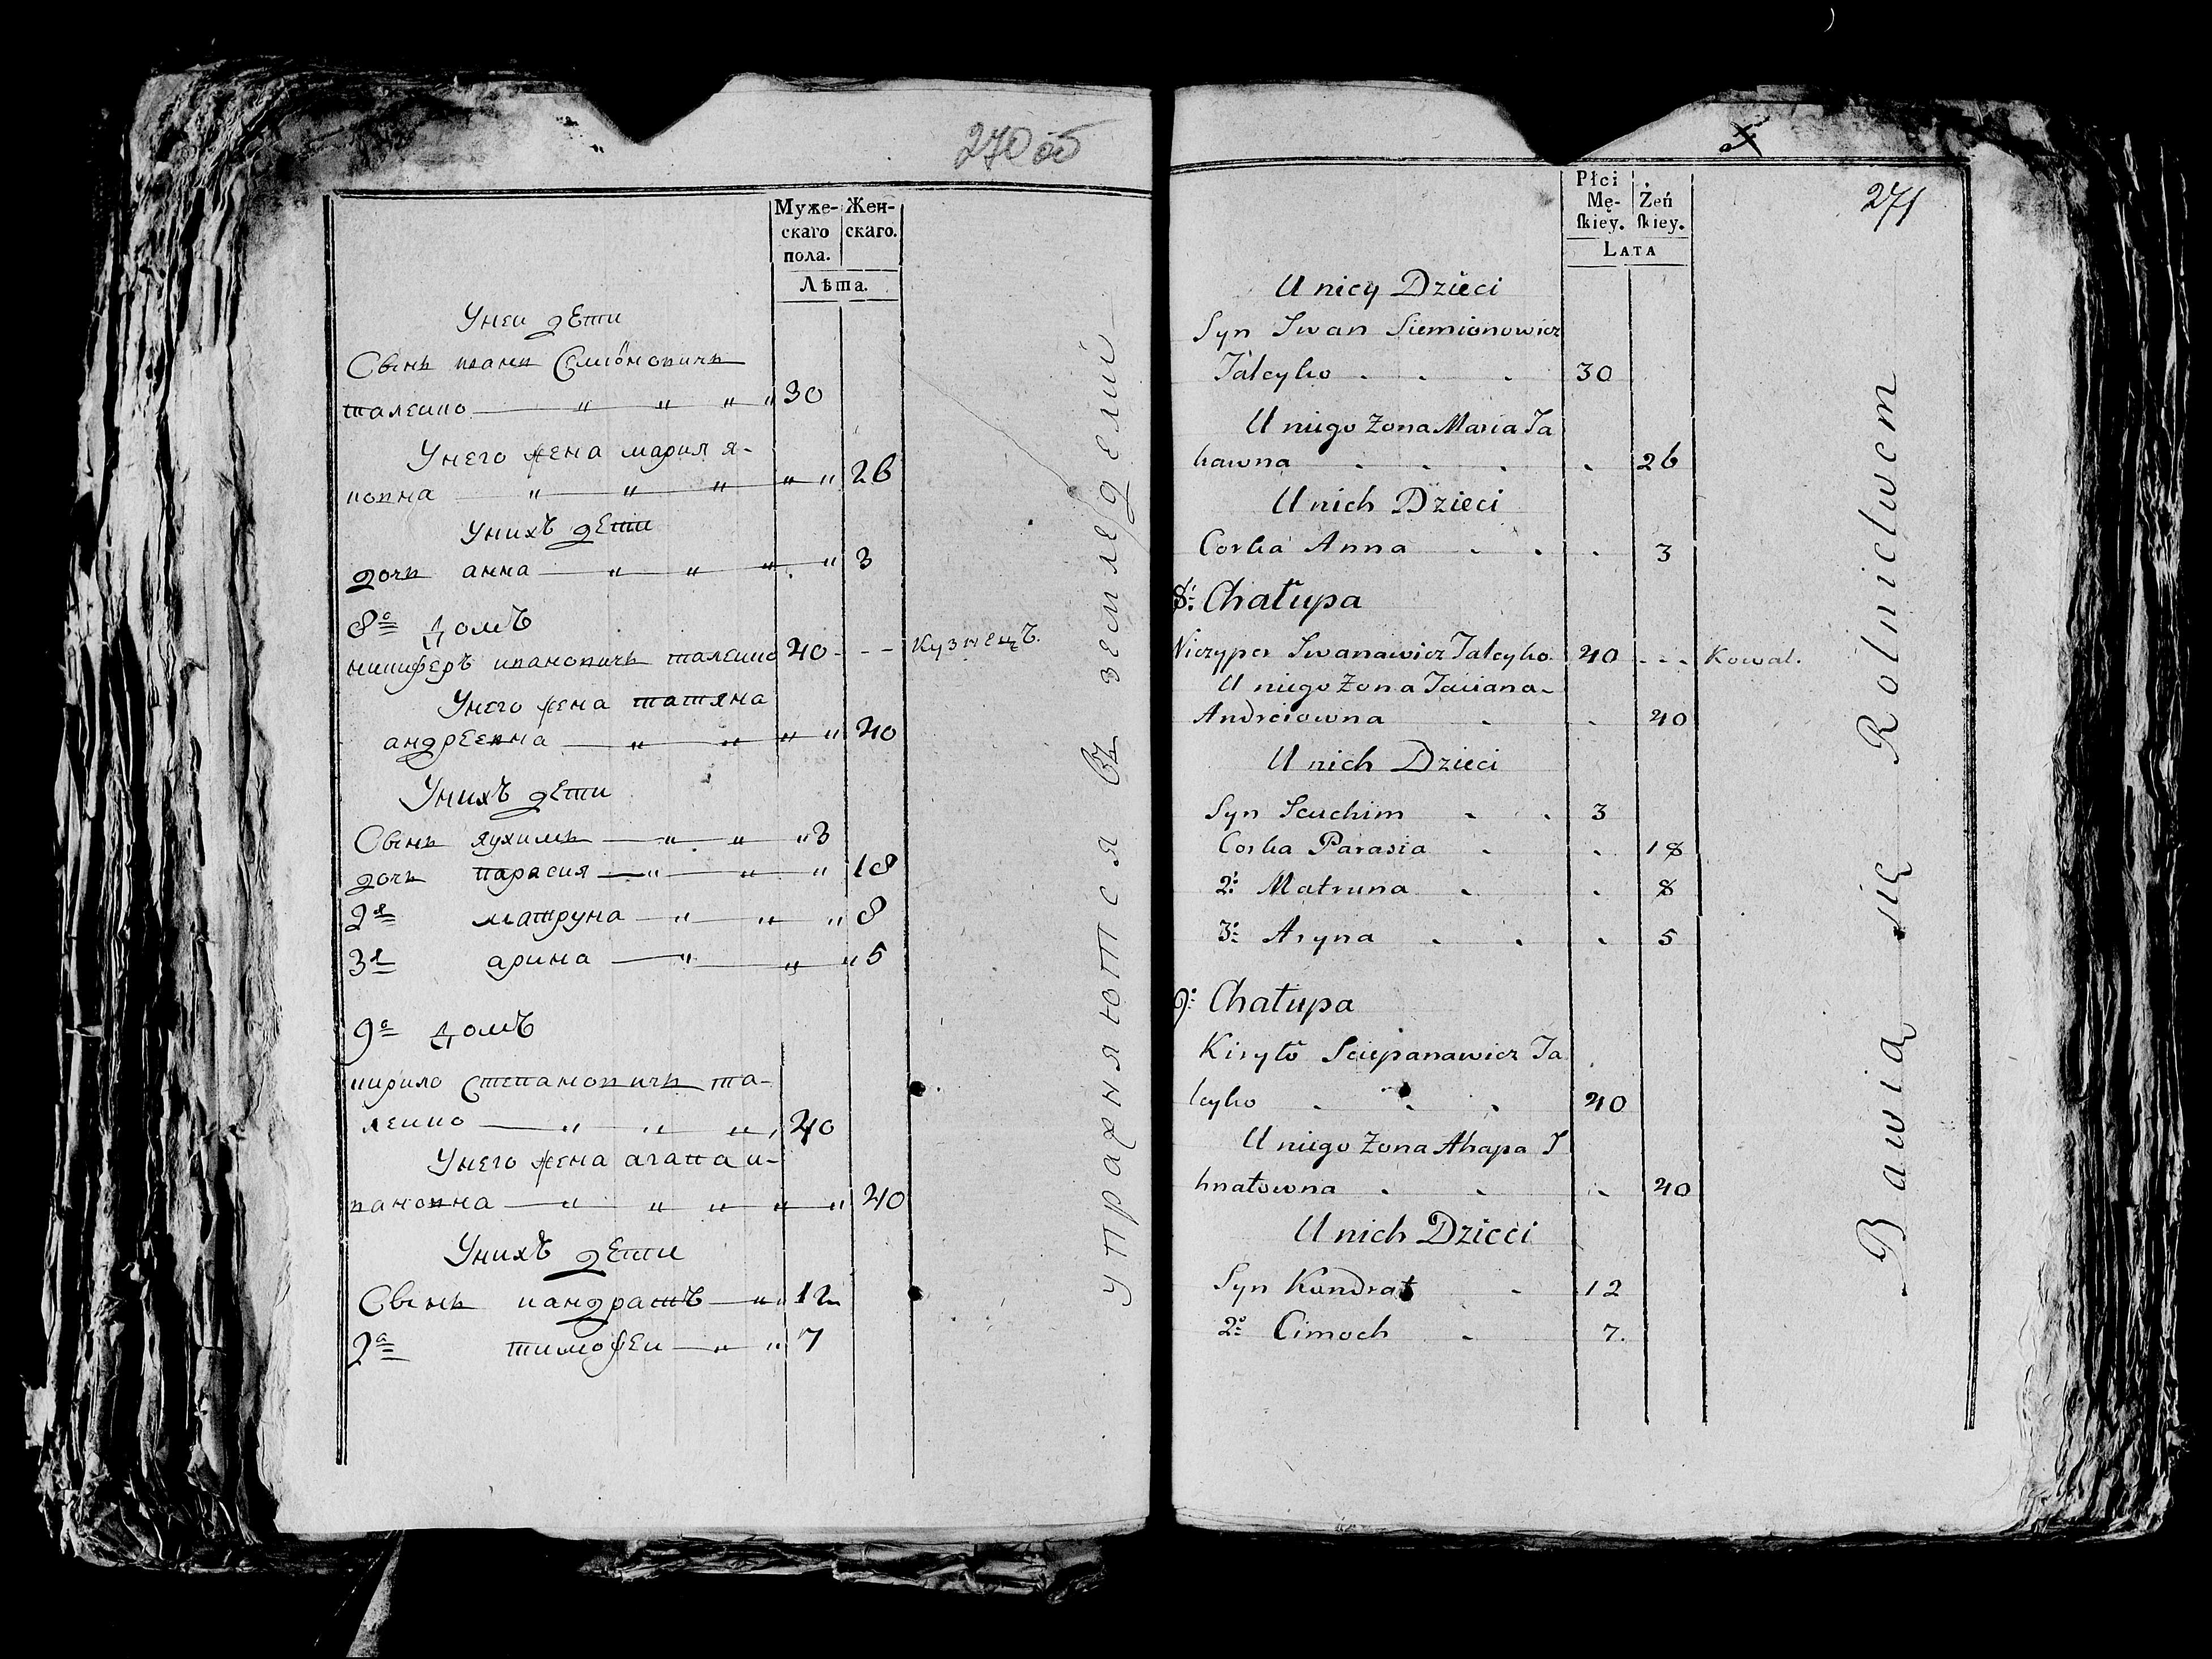 270 об
Муже-
скаго
пола.
Жен-
скаго.
Лѣта.
Унеи дети
Сынъ иванъ Семіоновичъ
талейко 30
Унего жена мария я-
ковна 26
Унихъ дети
дочь анна 3
8й домъ
никиферъ ивановичъ талейко 40 - - кузнецъ.
Унего жена татяна
андреевна 40
Унихъ дети
Сынъ яухимъ 3
дочь парасия 18
2я матруна 8
3я арина 5
9й домъ
кирило степановичъ та-
лейко 40
Унего жена агапа и-
вановна 40
Унихъ дети
Сынъ кандратъ 12
2й тимофеи 7
упражняются въ земледелии
271
Płci
Mę-
ſkiey.
Żeń
ſkiey.
LATA
U niey Dzieci
Syn Iwan Siemionowicz
Taleyko 30
U niego Zona Maria Ja
kawna 26
U nich Dzieci
Corka Anna 3
8: Chałupa
Niczyper Iwanawicz Taleyko 40 - - - Kowal.
U niego Zona Taciana
Andreiowna 40
U nich Dzieci
Syn Jeuchim 3
Corka Parasia 18
2: Matruna 8
3: Aryna 5
9: Chałupa
Kiryło Sciepanawicz Ta
leyko 40
U niego Zona Ahapa I
hnatowna 40
U nich Dzieci
Syn Kandrat 12
2: Cimoch 7.
Bawią się Rolnictwem